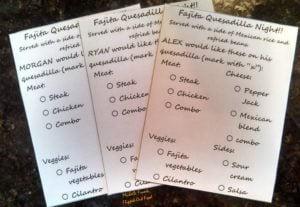 Fajita Quesadilla Night!!
Served with a side of
refried
MORGAN would like
quesadilla (mark
Meat:
Steak
Chicken
Combo
Veggies:
Fajita
vegetables
Cilantro
Fajita Quesadilla
Served with a side of
refried
RYAN would like
quesadilla (mark
Meat:
Steak
Chicken
Combo
Veggies:
Fajita
vegetables
Cilantro
Fajita Quesadilla Night!!
Served with a side of Mexican rice and
refried beans.
ALEX would like these on his
quesadilla (mark with "x"):
Meat:
Steak
Chicken
Combo
Veggies:
Fajita
vegetables
Cilantro
Cheese:
Pepper
Jack
Mexican
blend
combo
Sides:
Sour
cream
Salsa